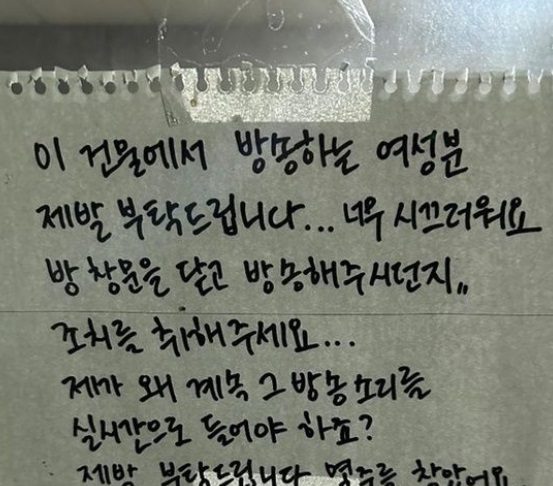 이 건물에서 방송하는 여성분
제발 부탁드립니다... 너무 시끄러워요
방 창문을 닫고 방송해주시던지,,
조치를 취해주세요...
제가 왜 계속 그 방송소리를
실시간으로 들어야 하죠?
제발 부탁드립니다 몇주를 참았어요